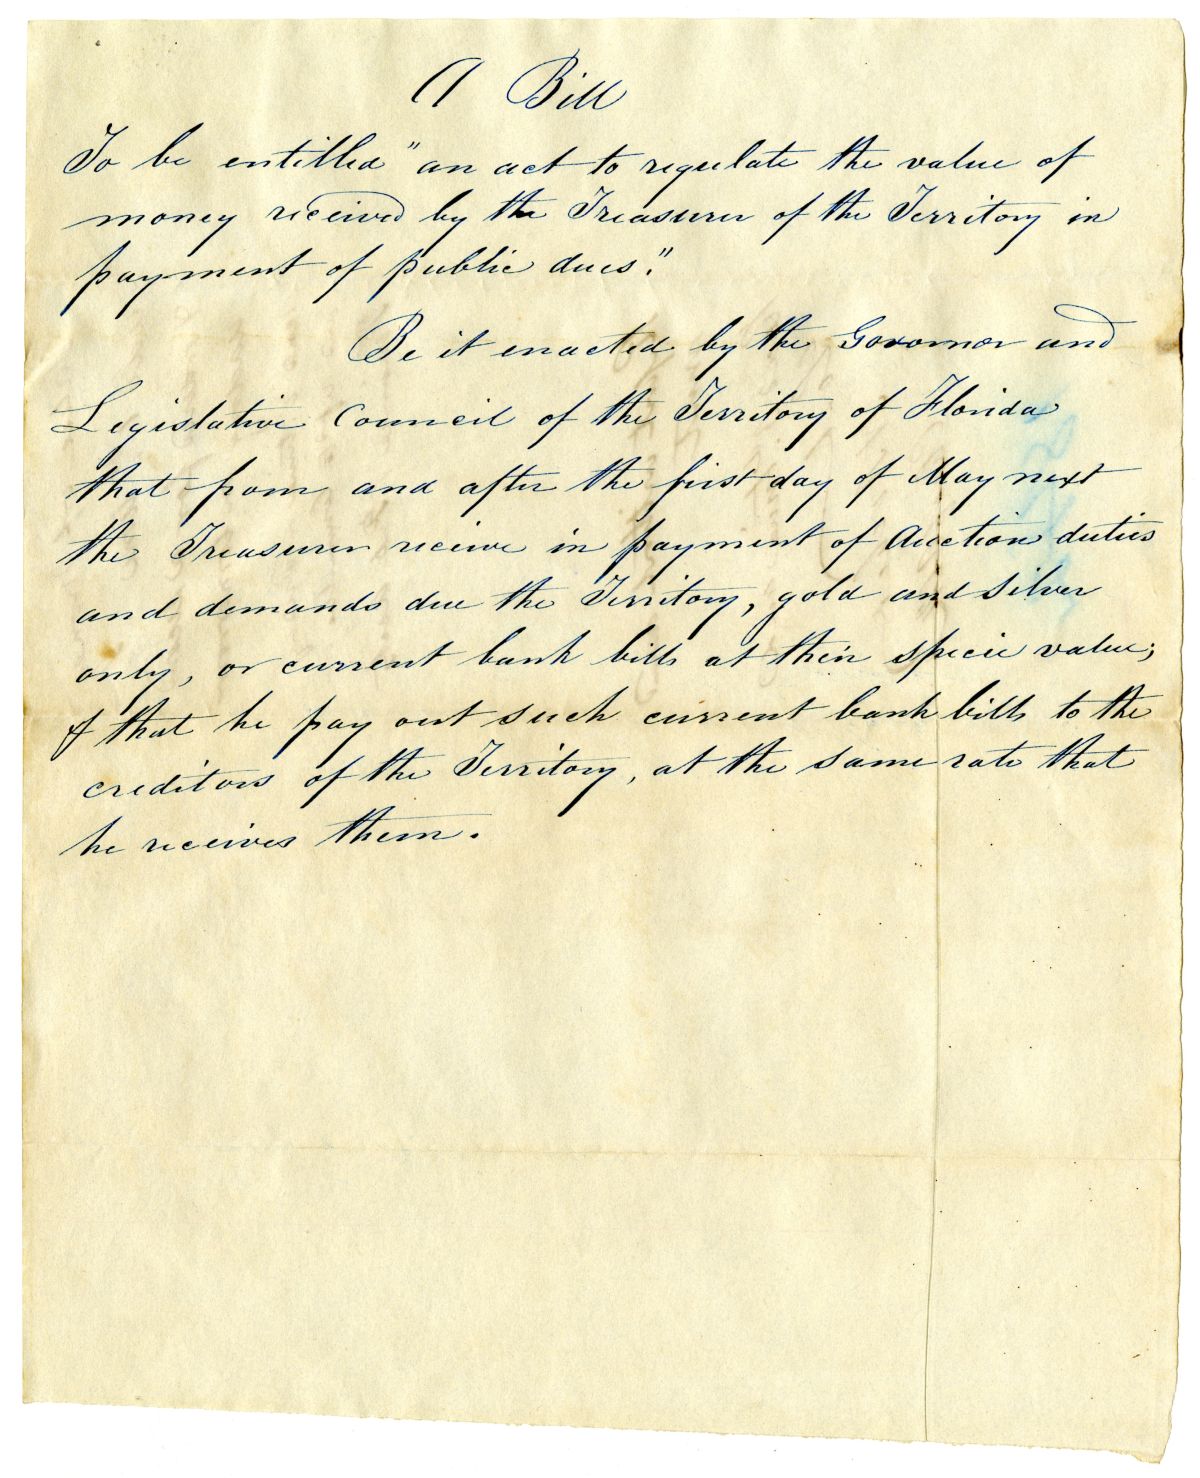 A Bill
To be entitled "an act to regulate the value of
money received by the Treasurer of the Territory in
payment of public dues."
Be it enacted by the Governor and
Legislative Council of the Territory of Florida
that from and after the first day of May next
the Treasurer receive in payment of Auction duties
and demands due the Territory, gold and silver
only, or current bank bills at their specie value;
& that he pay out such current bank bills to the
creditors of the Territory, at the same rate that
he receives them.